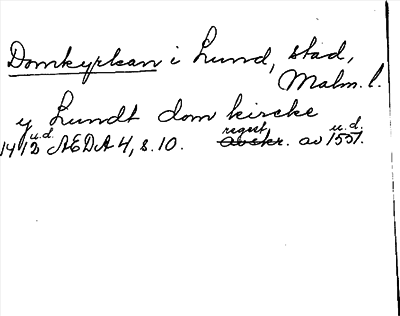 Domkyrkan i Lund, stad,
Malm. l.
y Lundt dom kircke
1412 u.d. AEDA 4, s. 10. avskr. regest av 1551. u.d.